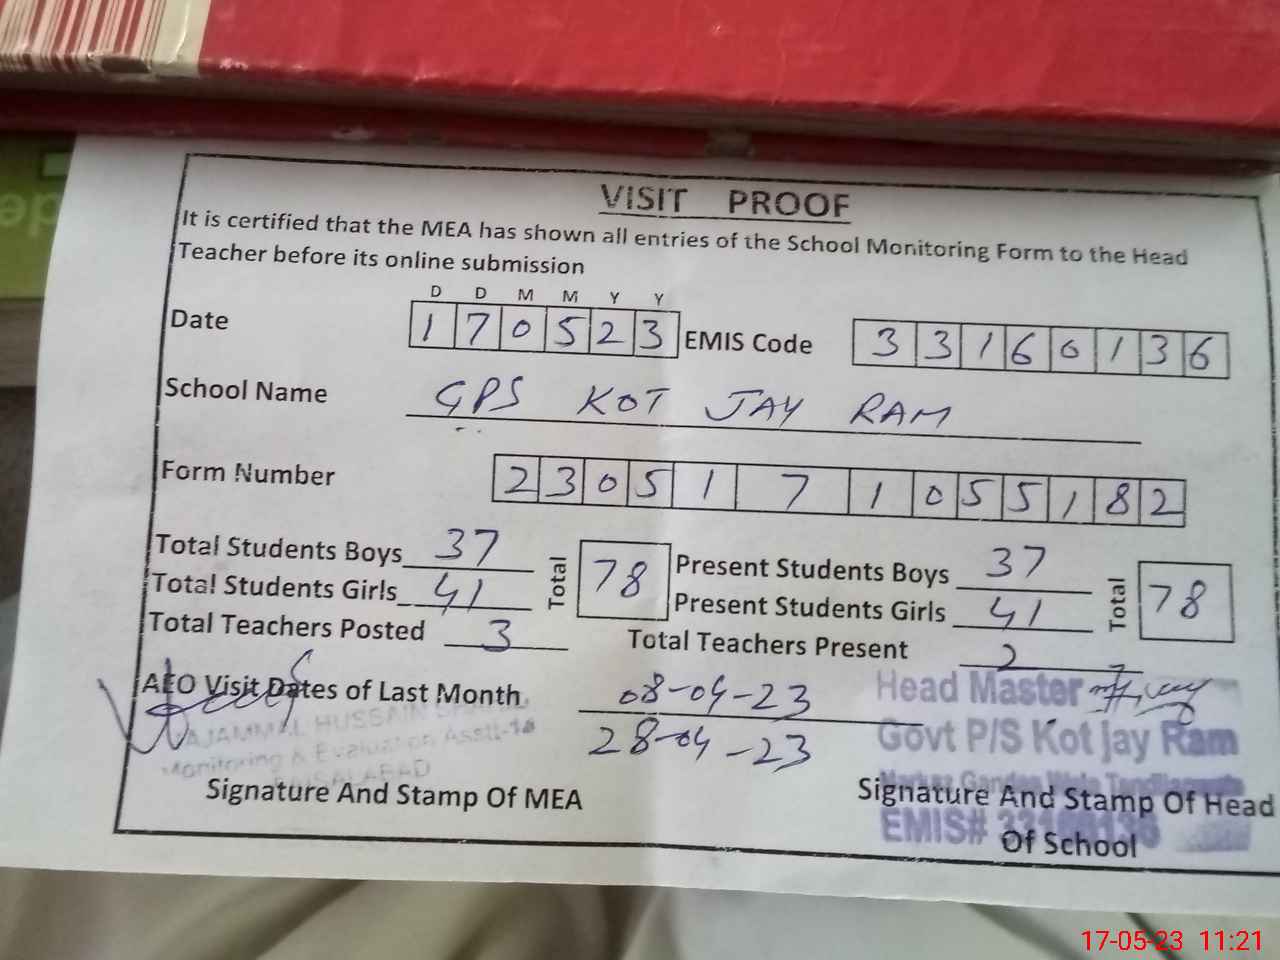 VISIT PROOF
It is certified that the MEA has shown all entries of the School Monitoring Form to the Head
Teacher before its online submission
D D M M Y Y
Date 1 7 0 5 2 3 EMIS Code 3 3 1 6 0 1 3 6
School Name GPS KOT JAY RAM
Form Number 2 3 0 5 1 7 1 0 5 5 1 8 2
Total Students Boys 37 Total 78 Present Students Boys 37 Total 78
Total Students Girls 41 Present Students Girls 41
Total Teachers Posted 3 Total Teachers Present 2
AEO Visit Dates of Last Month 08-04-23
28-04-23
HUSSAIN
Monitoring & Evaluation Asstt-18
FAISALABAD
Signature And Stamp Of MEA
Head Master
Govt P/S Kot Jay Ram
EMIS# 33160136
Signature And Stamp Of Head
Of School
17-05-23 11:21